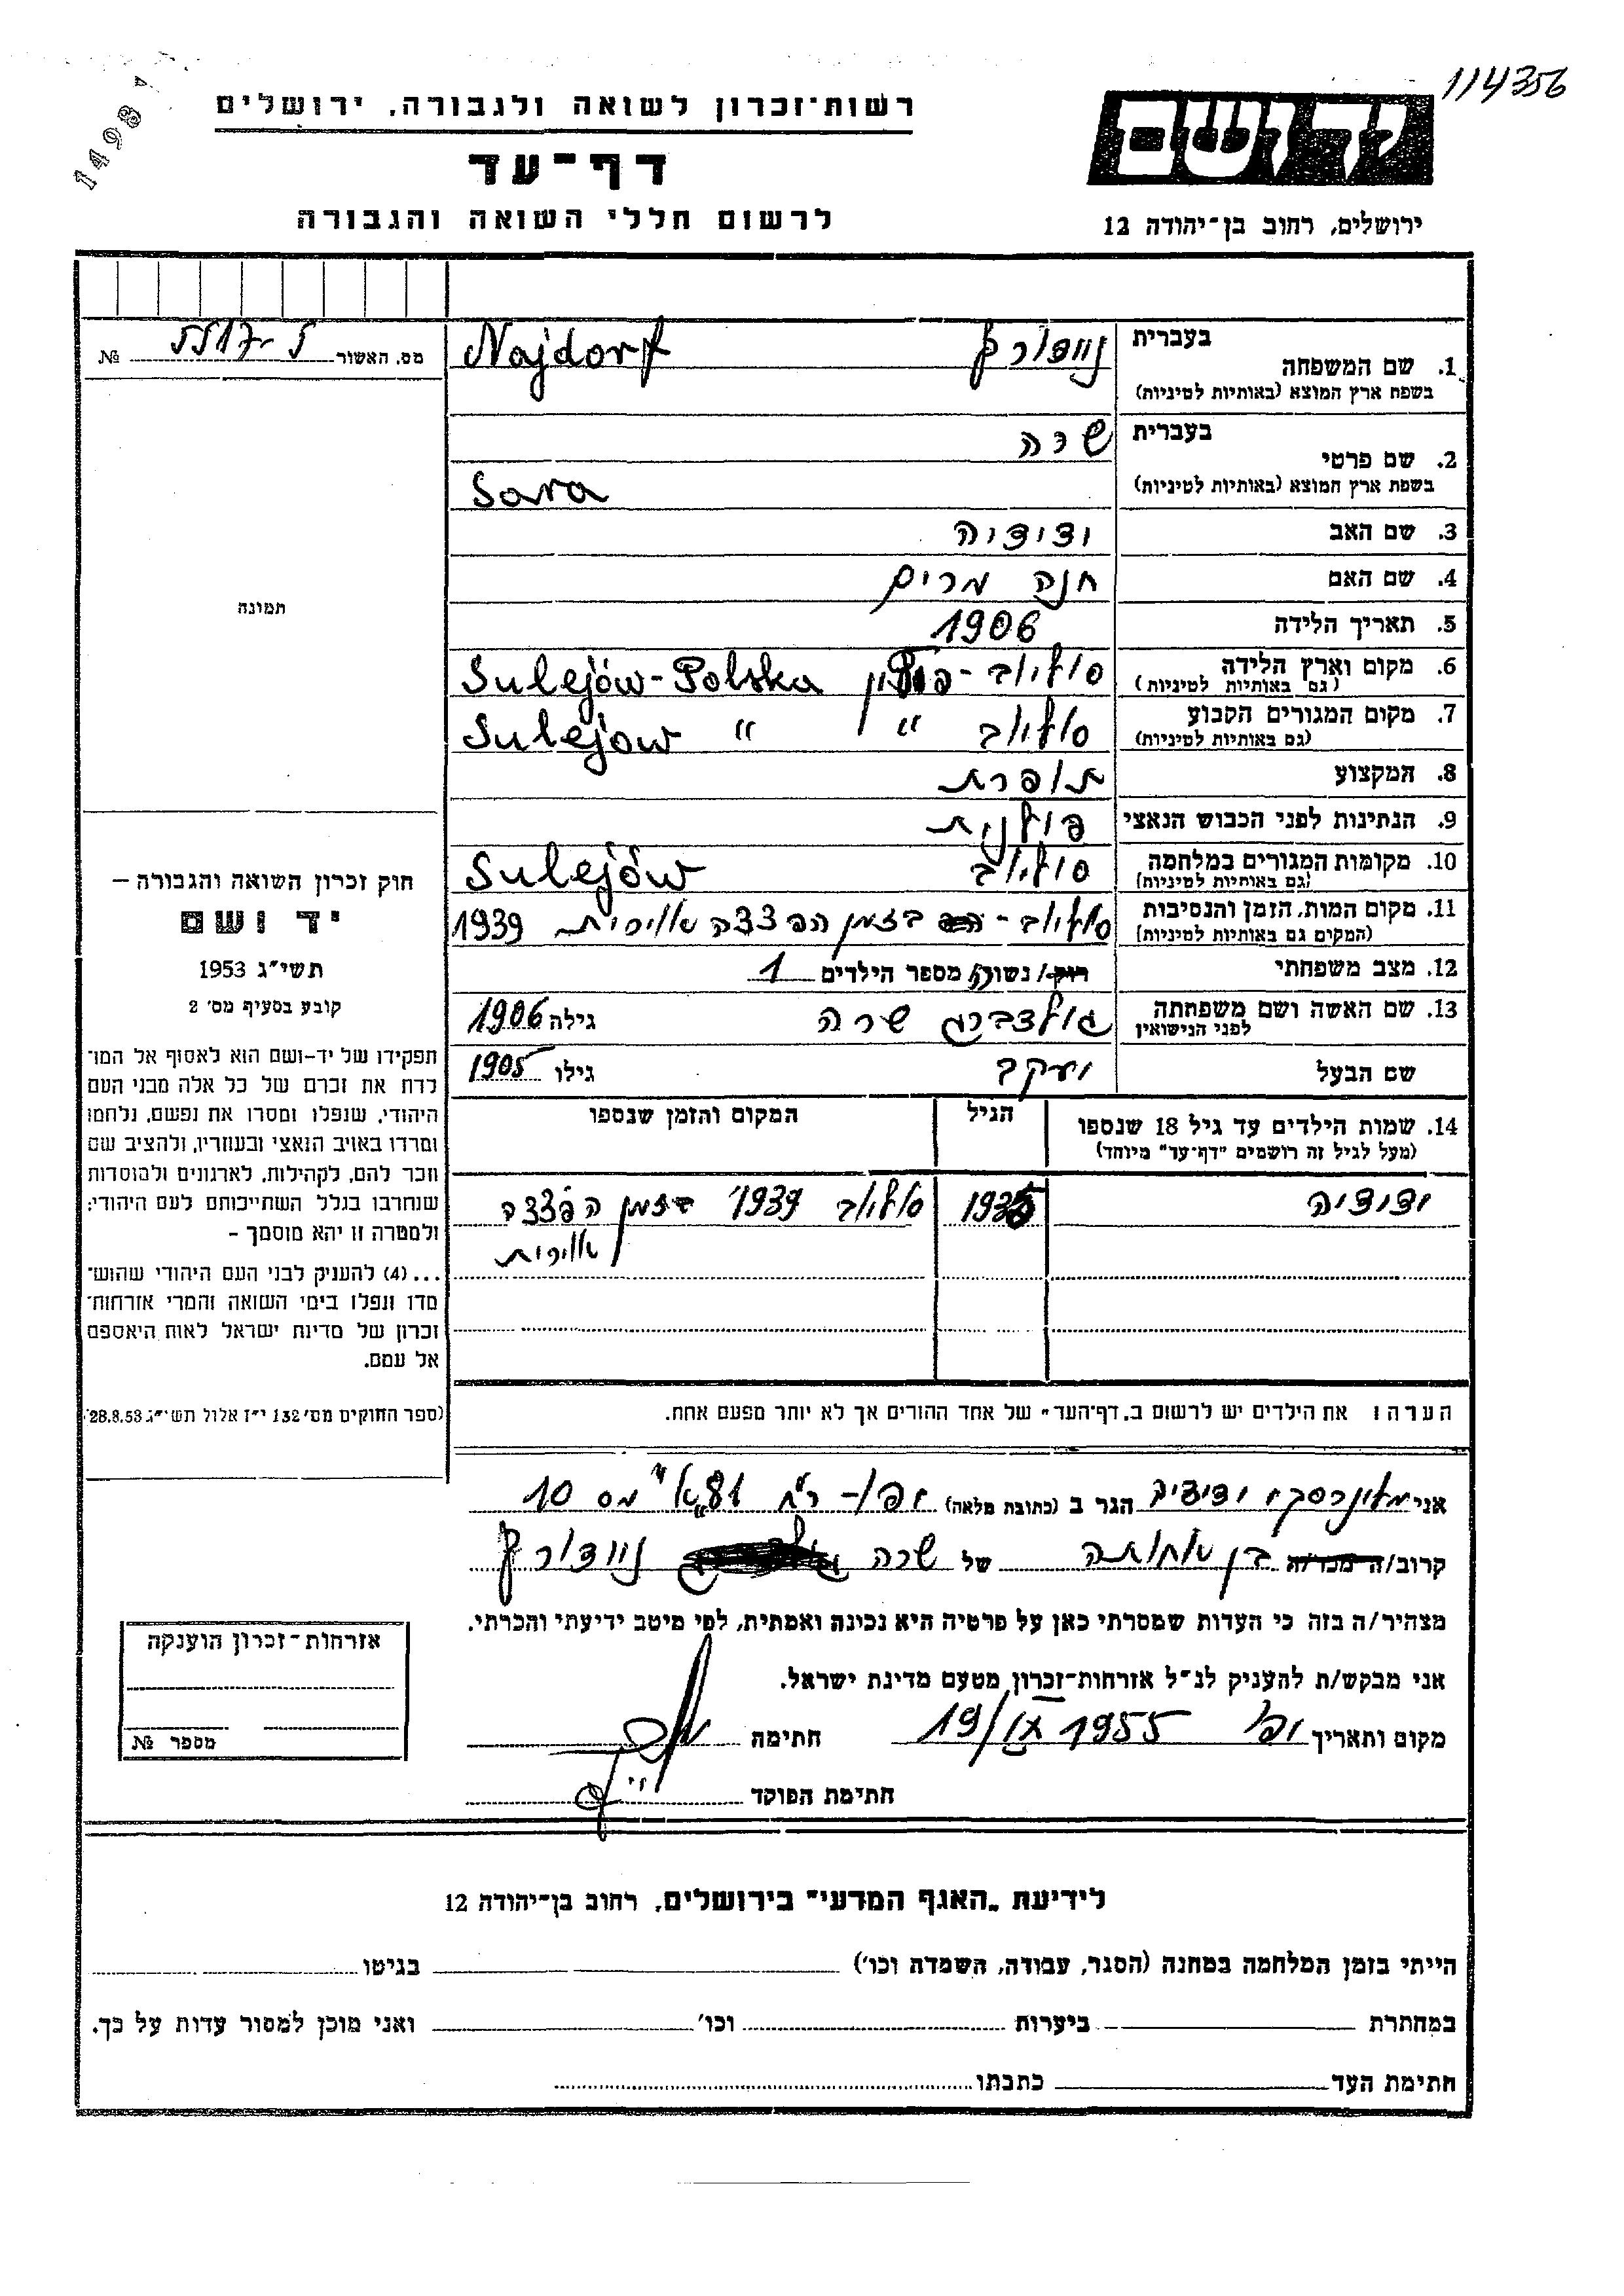 114356
1498
יד ושם
רשות־זכרון לשואה ולגבורה, ירושלים
דף־עד
לרשום חללי השואה והגבורה
ירושלים, רחוב בן־יהודה 12
מס. האשור № 
1. שם המשפחה בעברית נוידורף Najdorf
בשפת ארץ המוצא (באותיות לטיניות)
2. שם פרטי בעברית שרה
בשפת ארץ המוצא (באותיות לטיניות) Sara
3. שם האב ידידיה
4. שם האם חנה מרים
5. תאריך הלידה 1906
6. מקום וארץ הלידה סוליוב - פולין Sulejów-Polska
(גם באותיות לטיניות)
7. מקום המגורים הקבוע סוליוב " Sulejow "
(גם באותיות לטיניות)
8. המקצוע תופרת
9. הנתינות לפני הכבוש הנאצי פולנית
10. מקומות המגורים במלחמה סוליוב Sulejów
(גם באותיות לטיניות)
11. מקום המות, הזמן והנסיבות סוליוב - בזמן הפצצה אוירית 1939
(המקום גם באותיות לטיניות)
12. מצב משפחתי רוק/נשוי/ה מספר הילדים 1
13. שם האשה ושם משפחתה גולדברג שרה גילה 1906
לפני הנישואין
שם הבעל יעקב גילו 1905
14. שמות הילדים עד גיל 18 שנספו הגיל המקום והזמן שנספו
(מעל לגיל זה רושמים "דף־עד" מיוחד)
ידידיה 1935 סוליוב 1939 בזמן הפצצה
אוירית
הערה: את הילדים יש לרשום ב„דף־העד" של אחד ההורים אך לא יותר מפעם אחת.
תמונה
חוק זכרון השואה והגבורה –
יד ושם
תשי"ג 1953
קובע בסעיף מס' 2
תפקידו של יד-ושם הוא לאסוף אל המו־
לדת את זכרם של כל אלה מבני העם
היהודי, שנפלו ומסרו את נפשם, נלחמו
ומרדו באויב הנאצי ובעוזריו, ולהציב שם
וזכר להם, לקהילות, לארגונים ולמוסדות
שנחרבו בגלל השתייכותם לעם היהודי;
ולמטרה זו יהא מוסמך -
...(4) להעניק לבני העם היהודי שהוש־
מדו ונפלו בימי השואה והמרי אזרחות־
זכרון של מדינת ישראל לאות היאספם
אל עמם.
(ספר החוקים מס' 132 י"ז אלול תשי"ג 28.8.53)
אני ידידיה הגר ב (כתובת מלאה) יפו - מס 10
קרוב/ה מכר/ה בן אחותה של שרה נוידורף
מצהיר/ה בזה כי העדות שמסרתי כאן על פרטיה היא נכונה ואמתית, לפי מיטב ידיעתי והכרתי.
אני מבקש/ת להעניק לנ"ל אזרחות־זכרון מטעם מדינת ישראל.
מקום ותאריך יפו 19/IX 1955 חתימה
חתימת הפוקד
אזרחות־זכרון הוענקה
מספר №
לידיעת „האגף המדעי" בירושלים, רחוב בן־יהודה 12
הייתי בזמן המלחמה במחנה (הסגר, עבודה, השמדה וכו') בגיטו
במחתרת ביערות וכו' ואני מוכן למסור עדות על כך.
חתימת העד כתבתו